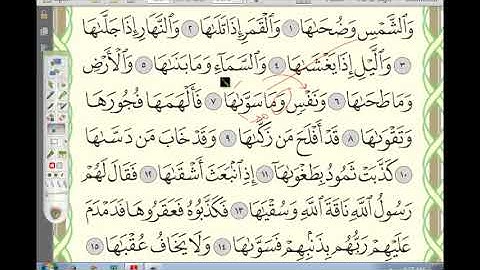 وَٱلشَّمْسِ وَضُحَىٰهَا ١ وَٱلْقَمَرِ إِذَا تَلَىٰهَا ٢ وَٱلنَّهَارِ إِذَا جَلَّىٰهَا
٣ وَٱلَّيْلِ إِذَا يَغْشَىٰهَا ٤ وَٱلسَّمَآءِ وَمَا بَنَىٰهَا ٥ وَٱلْأَرْضِ
وَمَا طَحَىٰهَا ٦ وَنَفْسٍ وَمَا سَوَّىٰهَا ٧ فَأَلْهَمَهَا فُجُورَهَا
وَتَقْوَىٰهَا ٨ قَدْ أَفْلَحَ مَن زَكَّىٰهَا ٩ وَقَدْ خَابَ مَن دَسَّىٰهَا
١٠ كَذَّبَتْ ثَمُودُ بِطَغْوَىٰهَآ ١١ إِذِ ٱنۢبَعَثَ أَشْقَىٰهَا ١٢ فَقَالَ لَهُمْ
رَسُولُ ٱللَّهِ نَاقَةَ ٱللَّهِ وَسُقْيَىٰهَا ١٣ فَكَذَّبُوهُ فَعَقَرُوهَا فَدَمْدَمَ
عَلَيْهِمْ رَبُّهُم بِذَنۢبِهِمْ فَسَوَّىٰهَا ١٤ وَلَا يَخَافُ عُقْبَىٰهَا ١٥